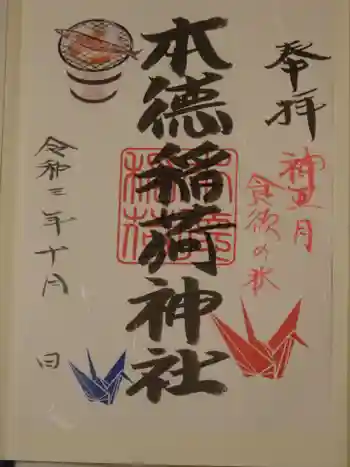 奉拝
神無月
食欲の秋
本徳稲荷神社
令和三年十月 日